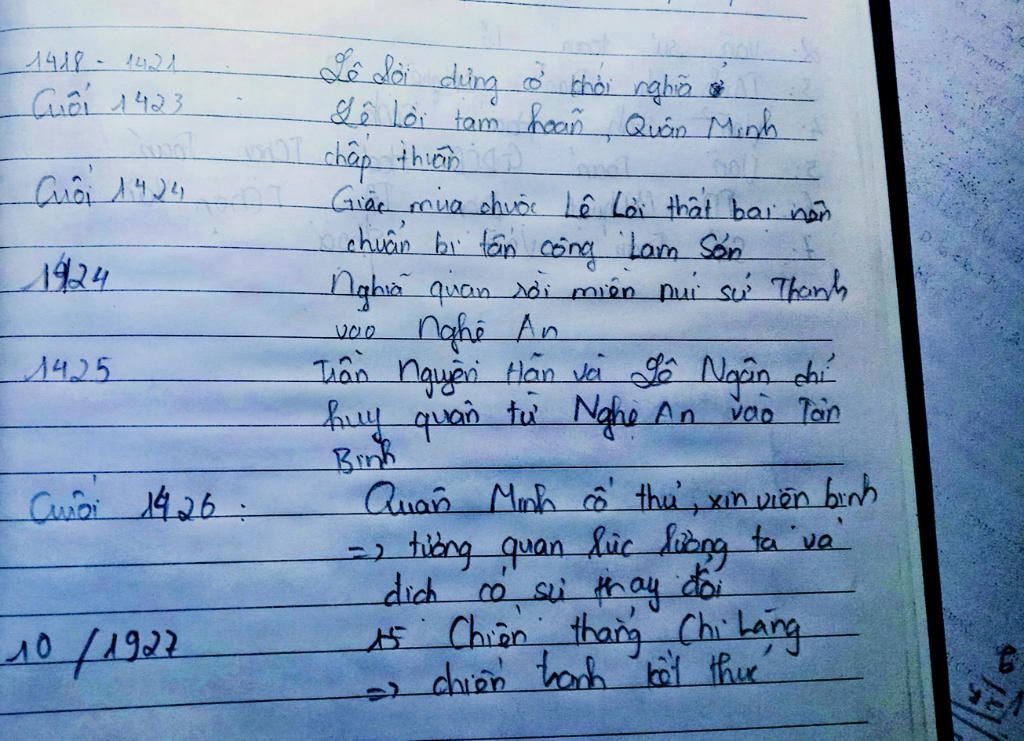 1418 - 1421 : Lê Lời dựng cờ khởi nghĩa ở
Cuối 1423 : Lê Lời tạm hoãn, Quân Minh
chấp thuận
Cuối 1424 Giặc mua chuộc Lê Lời thất bại nên
chuẩn bị tấn công Lam Sơn
1424 Nghĩa quân rời miền núi sứ Thanh
vào Nghệ An
1425 Trần Nguyên Hãn và Lê Ngân chỉ
huy quân từ Nghệ An vào Tân
Bình
Cuối 1426 : Quân Minh cố thủ, xin viện binh
=> tương quan lực lượng ta và
địch có sự thay đổi
10 / 1927 15 Chiến thắng Chi Lăng
=> chiến tranh kết thúc